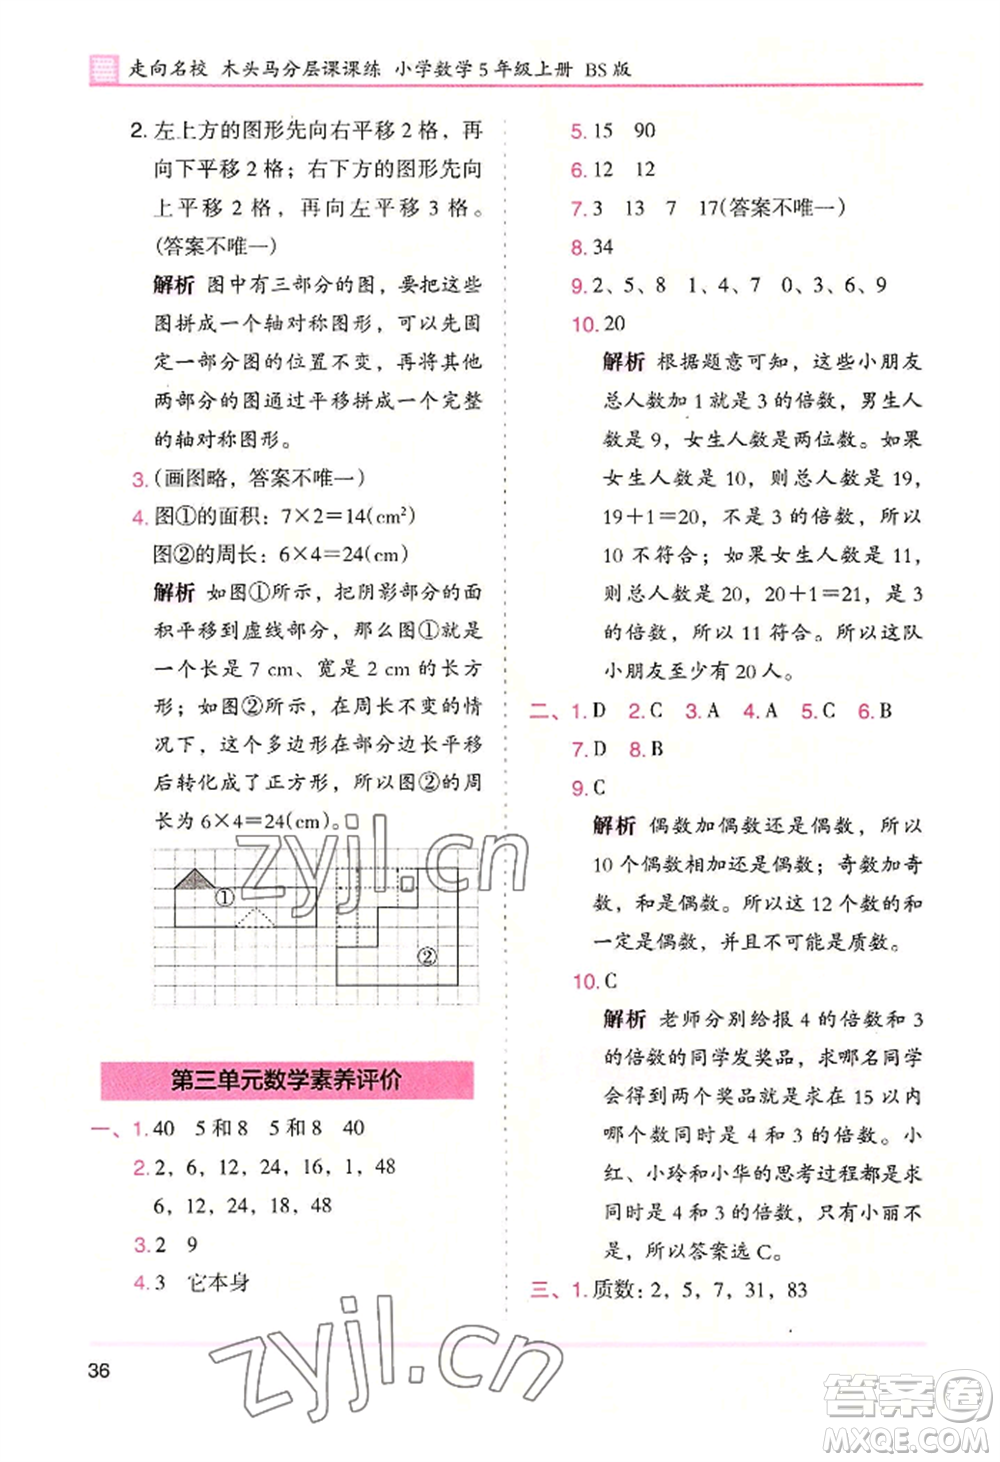 走向名校 木头马分层课课练 小学数学5年级上册 BS版
2. 左上方的图形先向右平移2格，再
向下平移2格；右下方的图形先向
上平移2格，再向左平移3格。
(答案不唯一)
解析 图中有三部分的图，要把这些
图拼成一个轴对称图形，可以先固
定一部分图的位置不变，再将其他
两部分的图通过平移拼成一个完整
的轴对称图形。
3. (画图略，答案不唯一)
4. 图①的面积：7×2=14(cm²)
图②的周长：6×4=24(cm)
解析 如图①所示，把阴影部分的面
积平移到虚线部分，那么图①就是
一个长是7 cm、宽是2 cm的长方
形；如图②所示，在周长不变的情
况下，这个多边形在部分边长平移
后转化成了正方形，所以图②的周
长为6×4=24(cm)。
①
②
第三单元数学素养评价
一、1. 40 5和8 5和8 40
2. 2，6，12，24，16，1，48
6，12，24，18，48
3. 2 9
4. 3 它本身
5. 15 90
6. 12 12
7. 3 13 7 17(答案不唯一)
8. 34
9. 2、5、8 1、4、7 0、3、6、9
10. 20
解析 根据题意可知，这些小朋友
总人数加1就是3的倍数，男生人
数是9，女生人数是两位数。如果
女生人数是10，则总人数是19，
19+1=20，不是3的倍数，所以
10不符合；如果女生人数是11，
则总人数是20，20+1=21，是3
的倍数，所以11符合。所以这队
小朋友至少有20人。
二、1. D 2. C 3. A 4. A 5. C 6. B
7. D 8. B
9. C
解析 偶数加偶数还是偶数，所以
10个偶数相加还是偶数；奇数加奇
数，和是偶数。所以这12个数的和
一定是偶数，并且不是质数。
10. C
解析 老师分别给报4的倍数和3
的倍数的同学发奖品，求哪名同学
会得到两个奖品就是求在15以内
哪个数同时是4和3的倍数。小
红、小玲和小华的思考过程都是求
同时是4和3的倍数，只有小丽不
是，所以答案选C。
三、1. 质数：2，5，7，31，83
36
zyjl.cn
zyjl.cn
答案卷
MXQE.COM